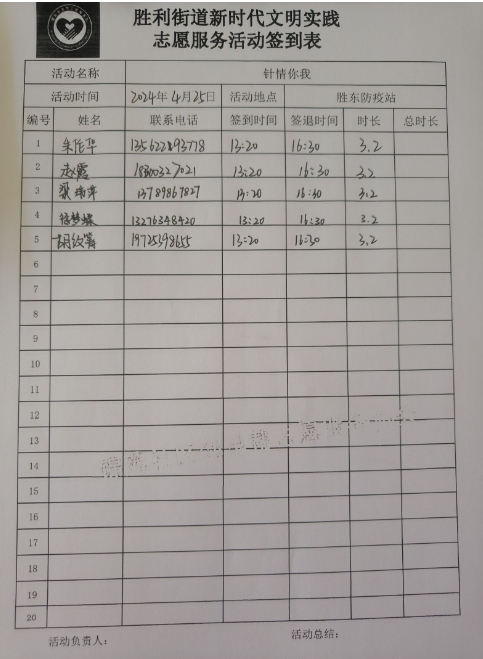 胜利街道新时代文明实践
志愿服务活动签到表
活动名称 针情你我
活动时间 2024年4月25日 活动地点 胜东防疫站
编号 姓名 联系电话 签到时间 签退时间 时长 总时长
1 朱作华 135622893778 13:20 16:30 3.2
2 赵霞 18300327021 13:20 16:30 3.2
3 13789867827 13:20 16:30 3.2
4 徐梦蝶 13276348420 13:20 16:30 3.2
5 19725398655 13:20 16:30 3.2
6
7
8
9
10
11
12
13
14
15
16
17
18
19
20
活动负责人： 活动总结：